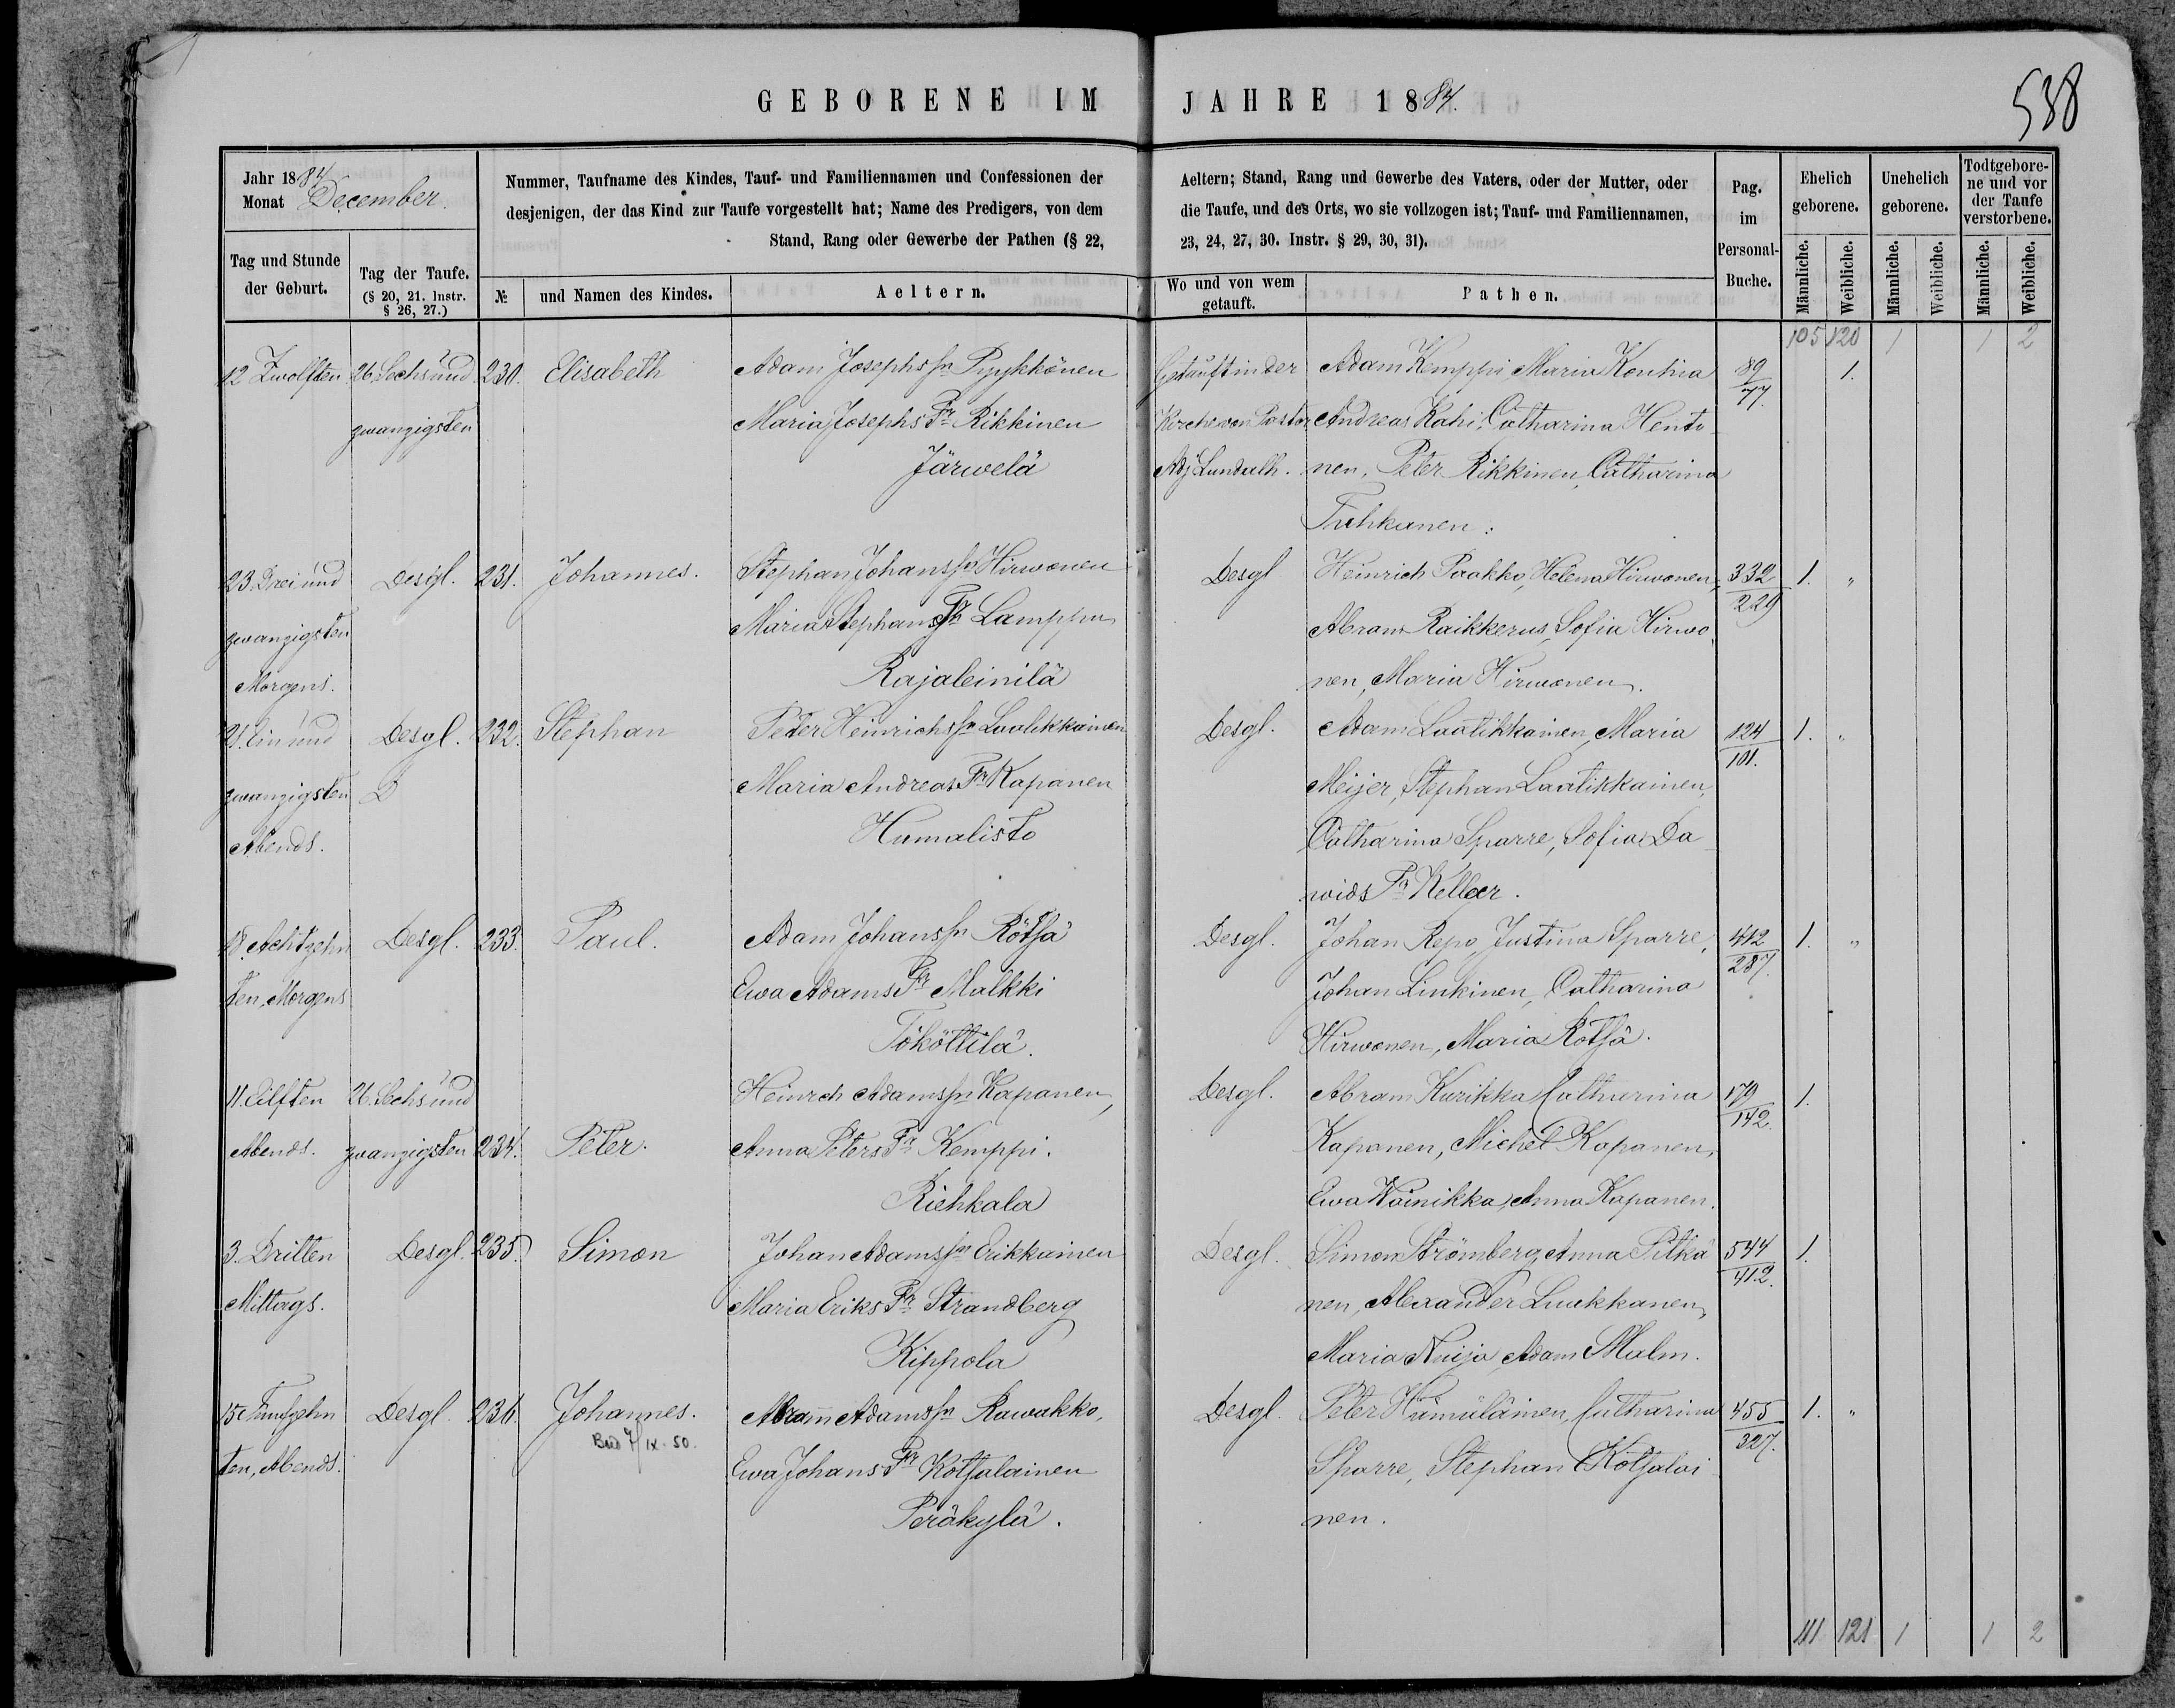 GEBORENE IM JAHRE 1884.
538
Jahr 1884
Monat December.
Tag und Stunde
der Geburt.
Tag der Taufe.
(§ 20, 21. Instr.
§ 26, 27.)
Nummer, Taufname des Kindes, Tauf- und Familiennamen und Confessionen der
desjenigen, der das Kind zur Taufe vorgestellt hat; Name des Predigers, von dem
Stand, Rang oder Gewerbe der Pathen (§ 22,
№
und Namen des Kindes.
Aeltern.
Aeltern; Stand, Rang und Gewerbe des Vaters, oder der Mutter, oder
die Taufe, und des Orts, wo sie vollzogen ist; Tauf- und Familiennamen,
23, 24, 27, 30. Instr. § 29, 30, 31).
Wo und von wem
getauft.
Pathen.
Pag.
im
Personal-
Buche.
Ehelich
geborene.
Unehelich
geborene.
Todtgebore-
ne und vor
der Taufe
verstorbene.
Männliche.
Weibliche.
Männliche.
Weibliche.
Männliche.
Weibliche.
105 120 1 1 2
12 Zwolften
26. Sechsund
zwanzigsten
230.
Elisabeth
Adam Josephs Sn Pyykkönen
Maria Josephs Tr Rikkinen
Järwelä
Getauft in der
Kirche von Pastor
Adj Lundalh.
Adam Kemppi, Maria Kouhia
Andreas Kahi, Catharina Hento-
nen, Peter Rikkinen, Catharina
Tuhkanen:
89
77.
1.
23. Drei und
zwanzigsten
Morgens.
Desgl.
231.
Johannes.
Stephan Johans Sn Hirwonen
Maria Stephans Tr Lamppu
Rajaleinilä
Desgl
Heinrich Paakko, Helena Hirwonen,
Abram Raikkerus, Sofia Hirwo
nen, Maria Hirwonen.
332
229
1. "
21. Ein und
zwanzigsten
Abends.
Desgl.
D
232.
Stephan
Peter Heinrichs Sn Laatikkainen
Maria Andreas Tr Kapanen
Humalisto
Desgl.
Adam Laatikkainen, Maria
Meijer, Stephan Laatikkainen,
Catharina Sparre, Sofia Da
wids Tr Kelleer.
124
101.
1. "
18. Achtzehn
ten, Morgens
Desgl.
233.
Paul.
Adam Johans Sn Rötsä
Ewa Adams Tr Malkki
Tököttilä.
Desgl.
Johan Repo, Justina Sparre,
Johan Linkinen, Catharina
Hirwonen, Maria Rötsä.
412
287.
1. "
11. Eilften
Abends.
26. Sechsund
zwanzigsten
234.
Peter.
Heinrch Adams Sn Kapanen,
Anna Peters Tr Kemppi.
Riehkala
Desgl.
Abram Kurikka Catharina
Kapanen, Michel Kapanen,
Ewa Wäinikka, Anna Kapanen.
179
142.
1.
3. Dritten
Mittags.
Desgl.
235.
Simon
Johan Adams Sn Erikkainen
Maria Eriks Tr Strandberg
Kippola
Desgl.
Simon Strömberg, Anna Pitkä
nen, Alexander Luukkanen,
Maria Nuija, Adam Malm.
544
412.
1.
15. Funfzehn
ten, Abends.
Desgl.
236.
Johannes.
7/IX. 50.
Abram Adams Sn Rawakko,
Ewa Johans Tr Kotsalainen
Peräkylä.
Desgl.
Peter Hämäläinen, Catharina
Sparre, Stephan Kotsalai
nen.
455
327.
1. "
111 121 1 1 2